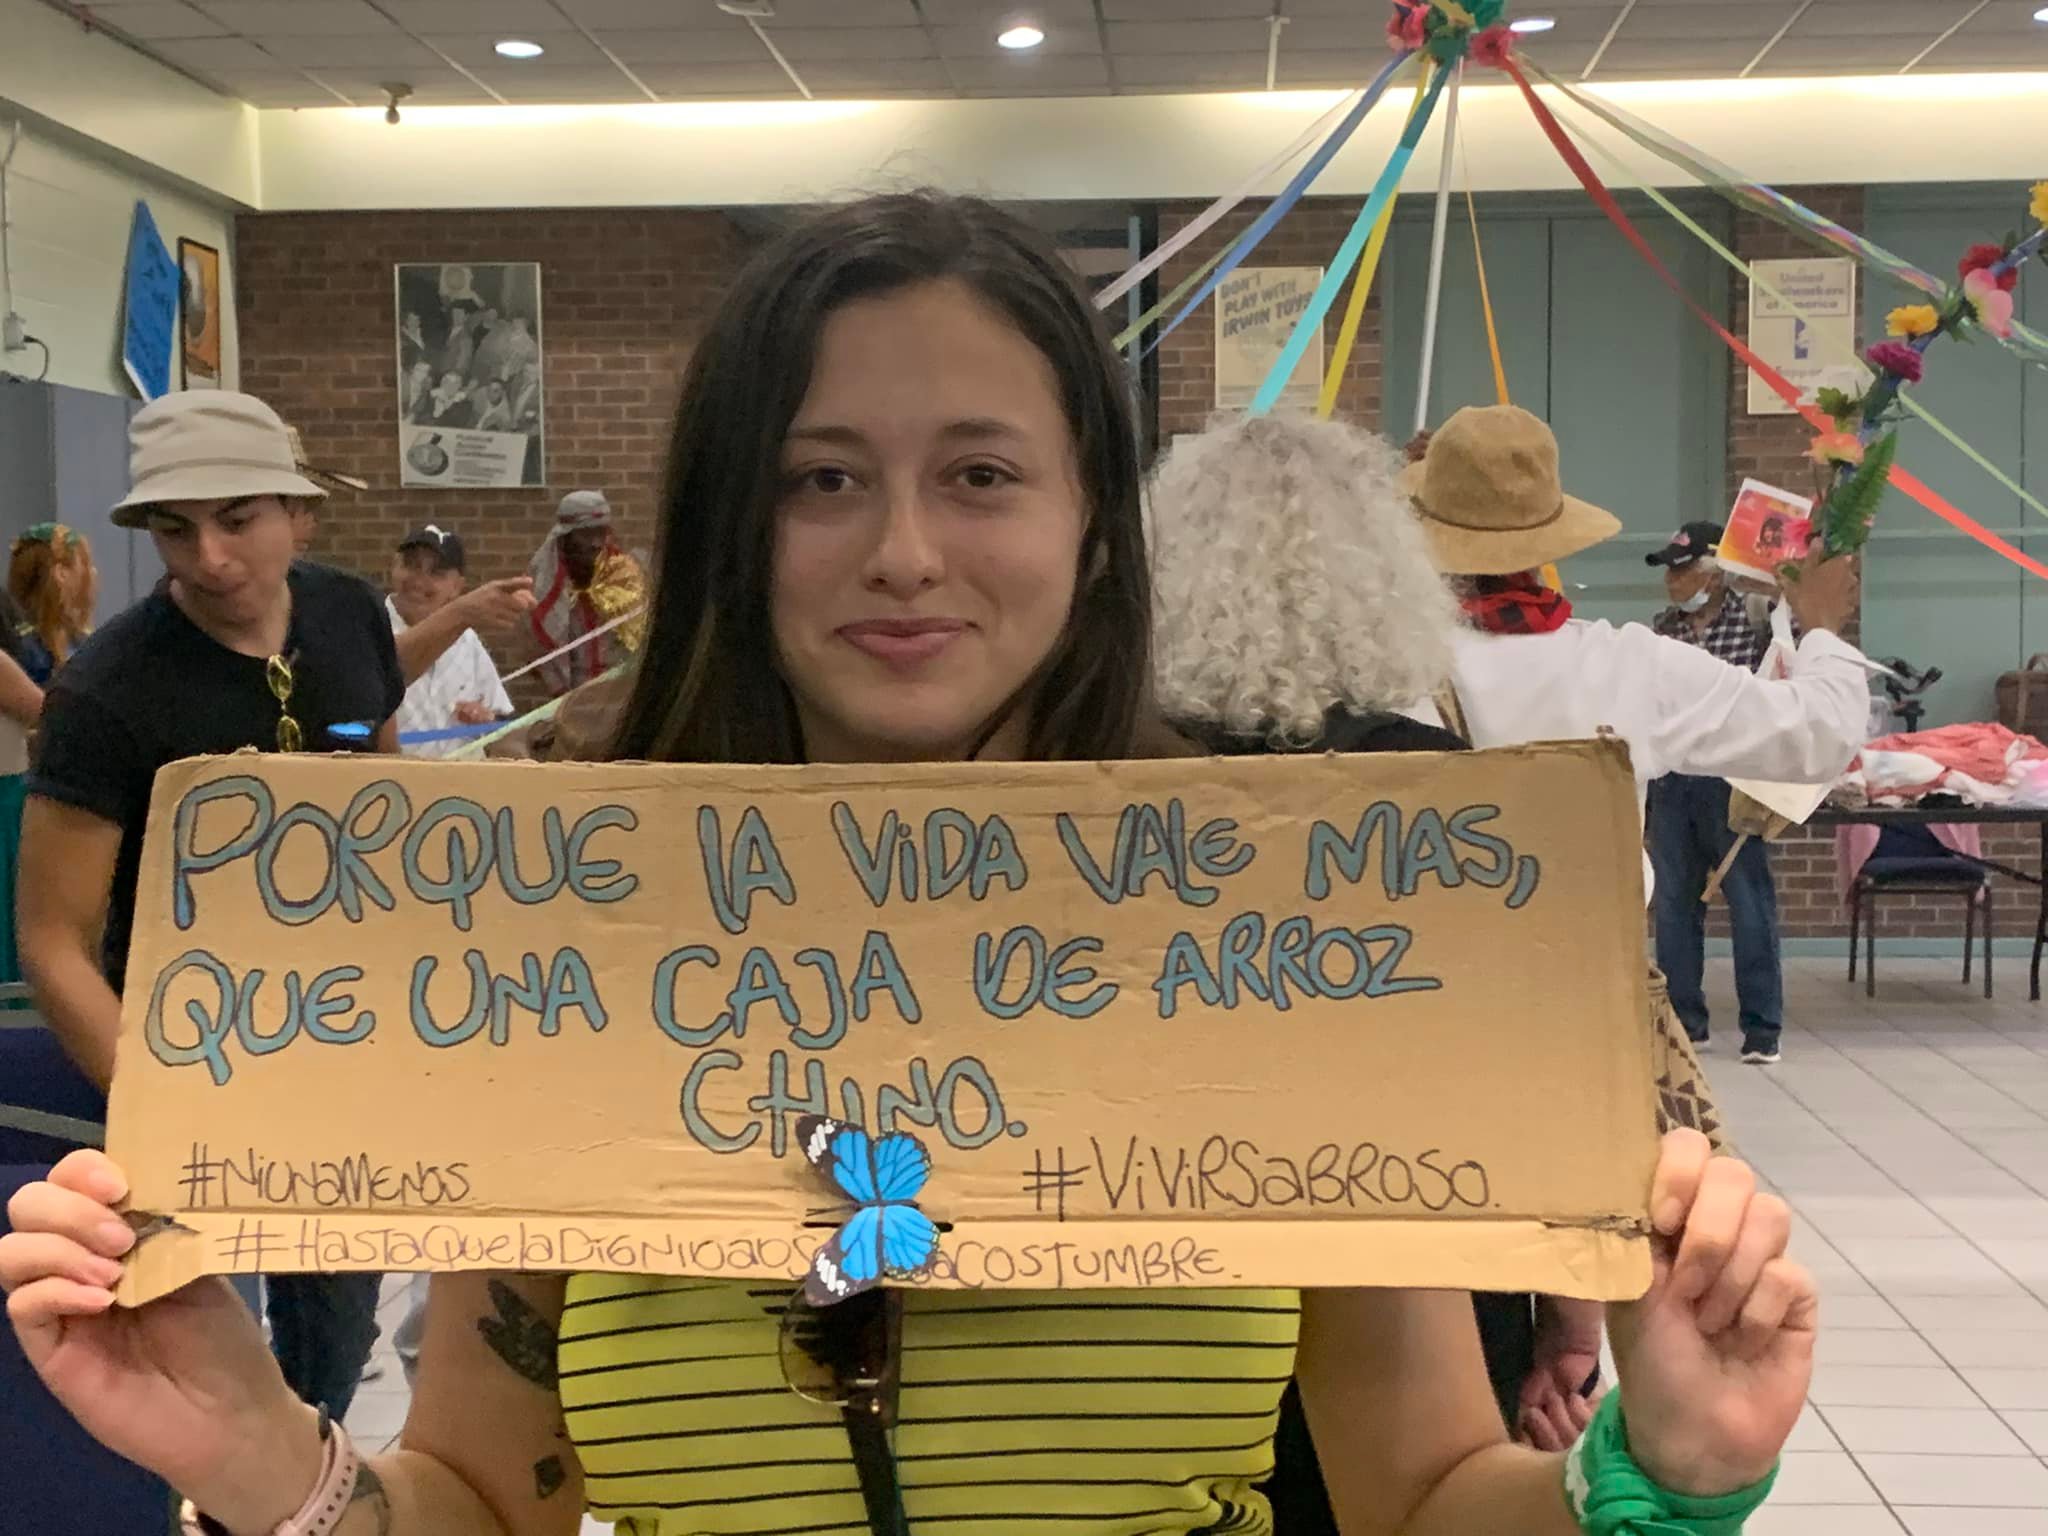 DON'T
PLAY WITH
IRWIN TOYS
United
Steelworkers
of America
PORQUE LA VIDA VALE MAS,
QUE UNA CAJA DE ARROZ
CHINO.
#NIUNAMENOS
#VIVIRSABROSO.
#HASTAQUELADIGNIDADS ACOSTUMBRE.